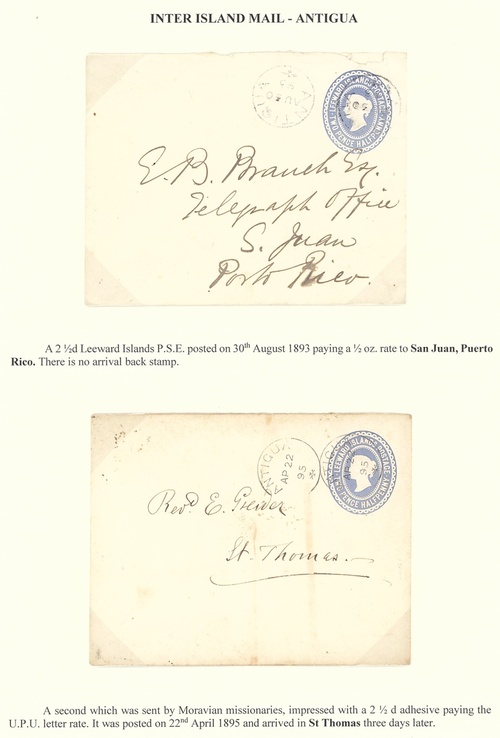 INTER ISLAND MAIL - ANTIGUA
ANTIGUA
AU 30
LEEWARD ISLANDS POSTAGE
TWO PENCE HALFPENNY
E. B. Branch Esq.
Telegraph Office
S. Juan
Porto Rico.
A 2 ½d Leeward Islands P.S.E. posted on 30th August 1893 paying a ½ oz. rate to San Juan, Puerto
Rico. There is no arrival back stamp.
ANTIGUA
AP 22
95
LEEWARD ISLANDS POSTAGE
TWO PENCE HALFPENNY
Revd E. Greider
St. Thomas.
A second which was sent by Moravian missionaries, impressed with a 2 ½ d adhesive paying the
U.P.U. letter rate. It was posted on 22nd April 1895 and arrived in St Thomas three days later.